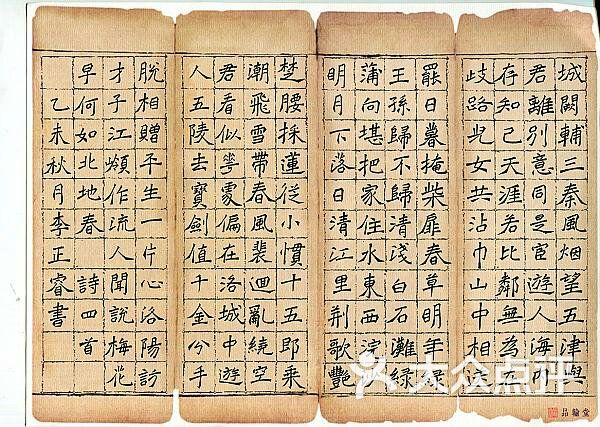 城闕輔三秦風烟望五津與
君離別意同是宦遊人海內
存知己天涯若比鄰無為在
歧路兒女共沾巾山中相送
罷日暮掩柴扉春草明年綠
王孫歸不歸清淺白石灘綠
蒲向堪把家住水東西浣紗
明月下落日清江里荊歌艷
楚腰採蓮從小慣十五即乘
潮飛雪帶春風裴迴亂繞空
君看似華處偏在洛城中遊
人五陵去寶劍值千金分手
脫相贈平生一片心洛陽訪
才子江作流人聞說梅花
早何如北地春 詩四首
乙未秋月李正睿書
品翰堂
大众点评